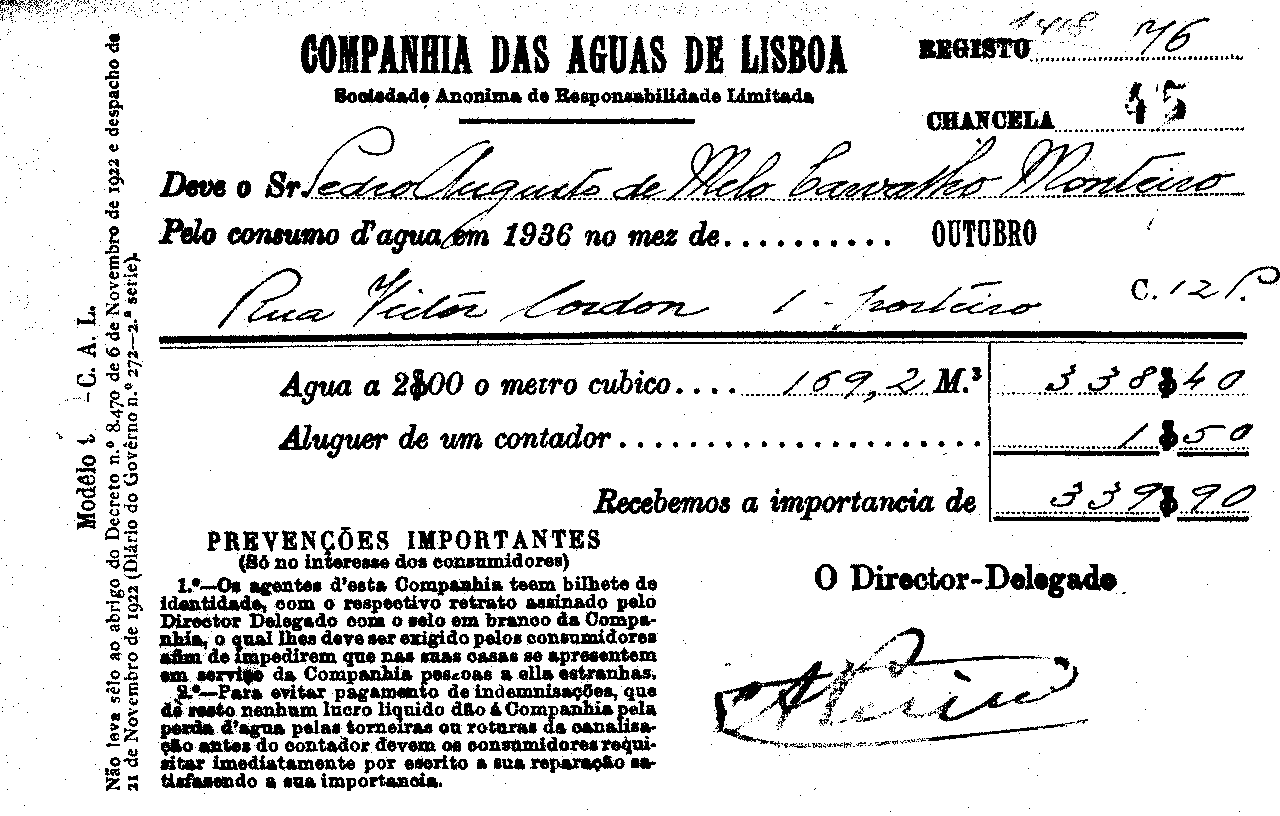 COMPANHIA DAS AGUAS DE LISBOA
Sociedade Anonima de Responsabilidade Limitada
REGISTO 1418 76
CHANCELA 45
Deve o Sr. Pedro Augusto de Melo Carvalho Monteiro
Pelo consumo d'agua em 1936 no mez de.......... OUTUBRO
Rua Victor Cordon 1 - porteiro C. 12 P.
Agua a 2$00 o metro cubico.... 169,2 M.³ 338$40
Aluguer de um contador...................... 1$50
Recebemos a importancia de 339$90
PREVENÇÕES IMPORTANTES
(Só no interesse dos consumidores)
1.º—Os agentes d'esta Companhia teem bilhete de
identidade, com o respectivo retrato assinado pelo
Director Delegado com o selo em branco da Compa-
nhia, o qual lhes deve ser exigido pelos consumidores
afim de impedirem que nas suas casas se apresentem
em serviço da Companhia pessoas a ella estranhas.
2.º—Para evitar pagamento de indemnisações, que
de resto nenhum lucro liquido dão á Companhia pela
perda d'agua pelas torneiras ou roturas da canalisa-
ção antes do contador devem os consumidores requi-
sitar imediatamente por escrito a sua reparação sa-
tisfasendo a sua importancia.
O Director-Delegado
Modêlo 1 -C. A. L.
Não leva sêlo ao abrigo do Decreto n.º 8.470 de 6 de Novembro de 1922 e despacho de
21 de Novembro de 1922 (Diário do Govêrno n.º 272—2.ª serie).